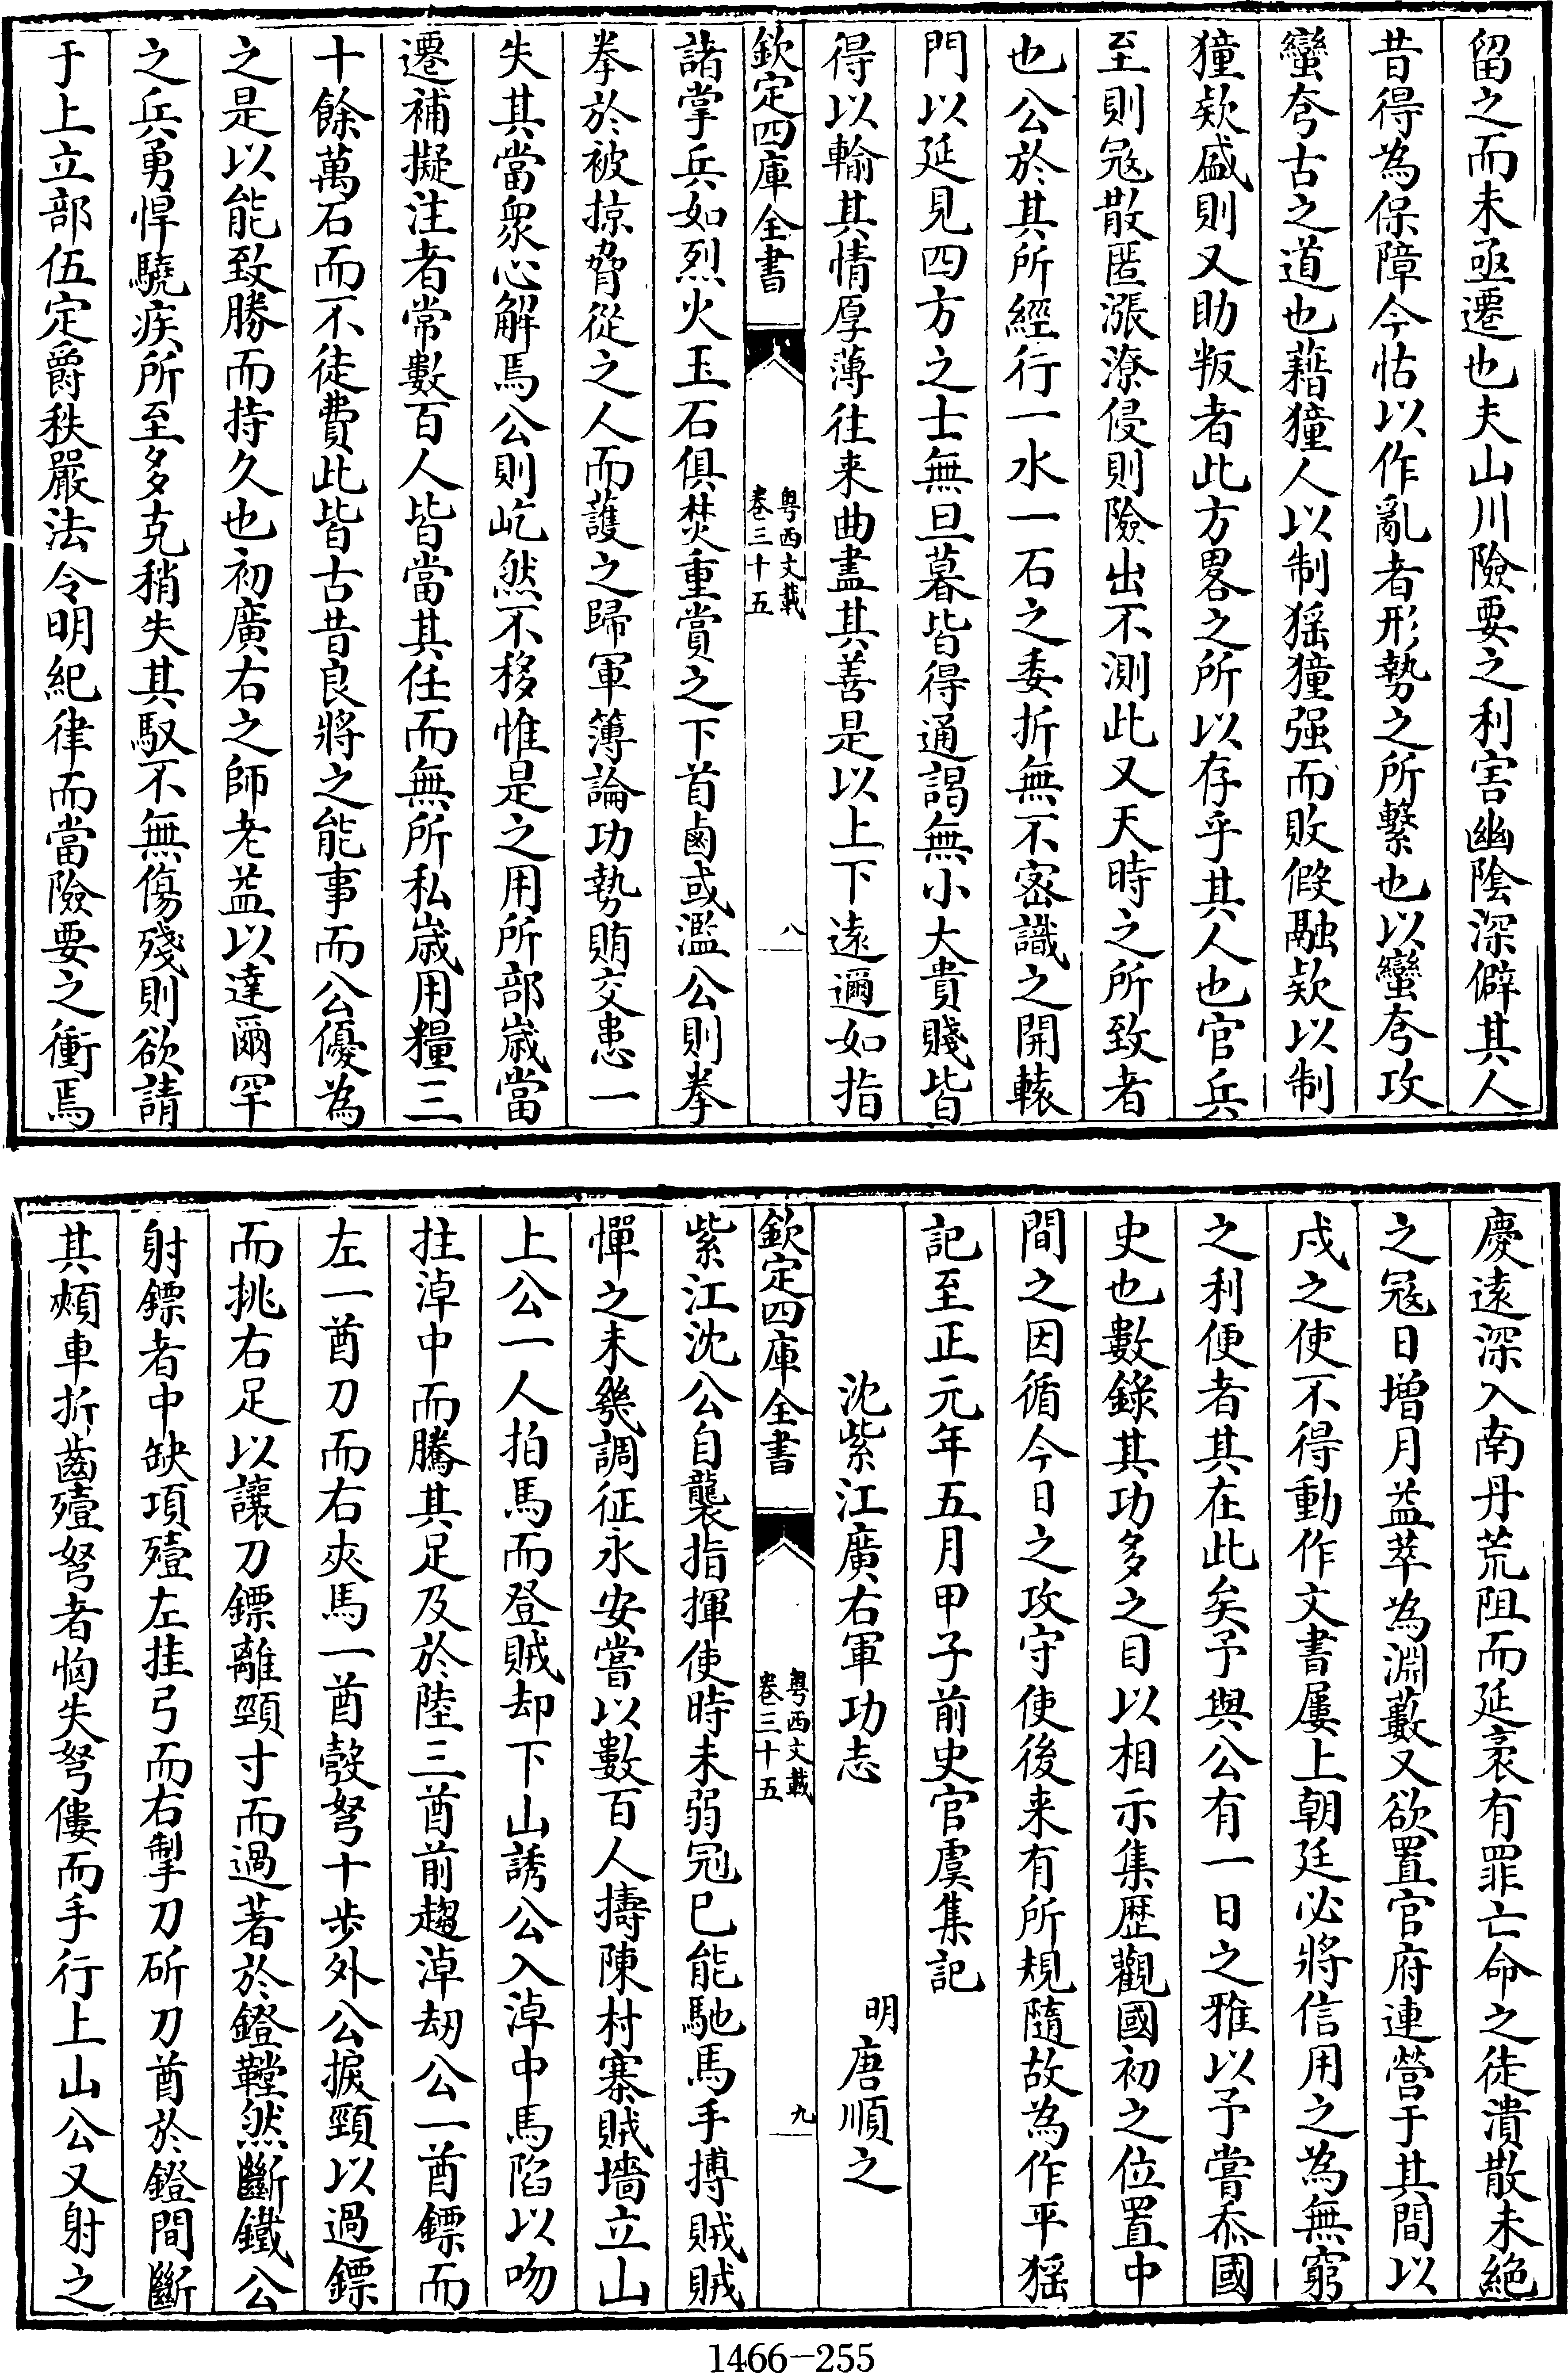 留之而未亟遷也夫山川險要之利害幽陰深僻其人
昔得為保障今怙以作亂者形勢之所繫也以蠻夸攻
蠻夸古之道也藉獞人以制猺獞强而敗假融欵以制
獞欵盛則又助叛者此方畧之所以存乎其人也官兵
至則冦散匿漲潦侵則險出不測此又天時之所致者
也公於其所經行一水一石之委折無不宻識之開轅
門以延見四方之士無旦暮皆得通謁無小大貴賤皆
得以輸其情厚薄往来曲盡其善是以上下遠邇如指
欽定四庫全書
粤西文載
卷三十五
八
諸掌兵如烈火玉石俱焚重賞之下首鹵或濫公則拳
拳於被掠脅從之人而護之歸軍簿論功勢賄交患一
失其當衆心解焉公則屹然不移惟是之用所部嵗當
遷補擬注者常數百人皆當其任而無所私嵗用糧三
十餘萬石而不徒費此皆古昔良將之能事而公優為
之是以能致勝而持久也初廣右之師老益以達爾罕
之兵勇悍驍疾所至多克稍失其馭不無傷殘則欲請
于上立部伍定爵秩嚴法令明紀律而當險要之衝焉
慶遠深入南丹荒阻而延袤有罪亡命之徒潰散未絕
之冦日增月益萃為淵藪又欲置官府連營于其間以
戍之使不得動作文書屢上朝廷必將信用之為無窮
之利便者其在此矣予與公有一日之雅以予嘗忝國
史也數錄其功多之目以相示集歴觀國初之位置中
間之因循今日之攻守使後来有所規隨故為作平猺
記至正元年五月甲子前史官虞集記
沈紫江廣右軍功志
明唐順之
欽定四庫全書
粤西文載
卷三十五
九
紫江沈公自襲指揮使時未弱冠已能馳馬手搏賊賊
憚之未幾調征永安嘗以數百人擣陳村寨賊墻立山
上公一人拍馬而登賊却下山誘公入淖中馬陷以吻
拄淖中而騰其足及於陸三酋前趨淖刼公一酋鏢而
左一酋刀而右夾馬一酋彀弩十步外公捩頸以過鏢
而挑右足以讓刀鏢離頸寸而過著於鐙鞺然斷鐵公
射鏢者中缺項殪左挂弓而右掣刀斫刀酋於鐙間斷
其頰車折齒殪弩者恟失弩僂而手行上山公又射之
1466-255